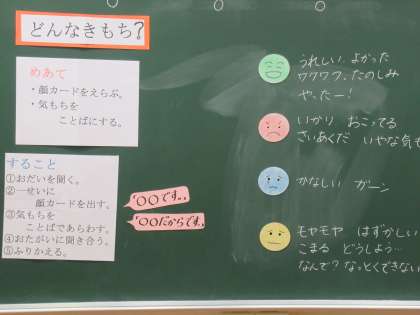 どんなきもち?
めあて
・顔カードをえらぶ。
・気もちを
ことばにする。
すること
①おだいを聞く。
②一せいに
顔カードを出す。
③気もちを
ことばであらわす。
④おたがいに聞き合う。
⑤ふりかえる。
○○です。
○○だからです。
うれしい。よかった
ワクワク、たのしみ
やったー!
いかり おこってる
さいあくだ いやな気も
かなしい ガーン
モヤモヤ はずかしい
こまる どうしよう…
なんで? なっとくできない